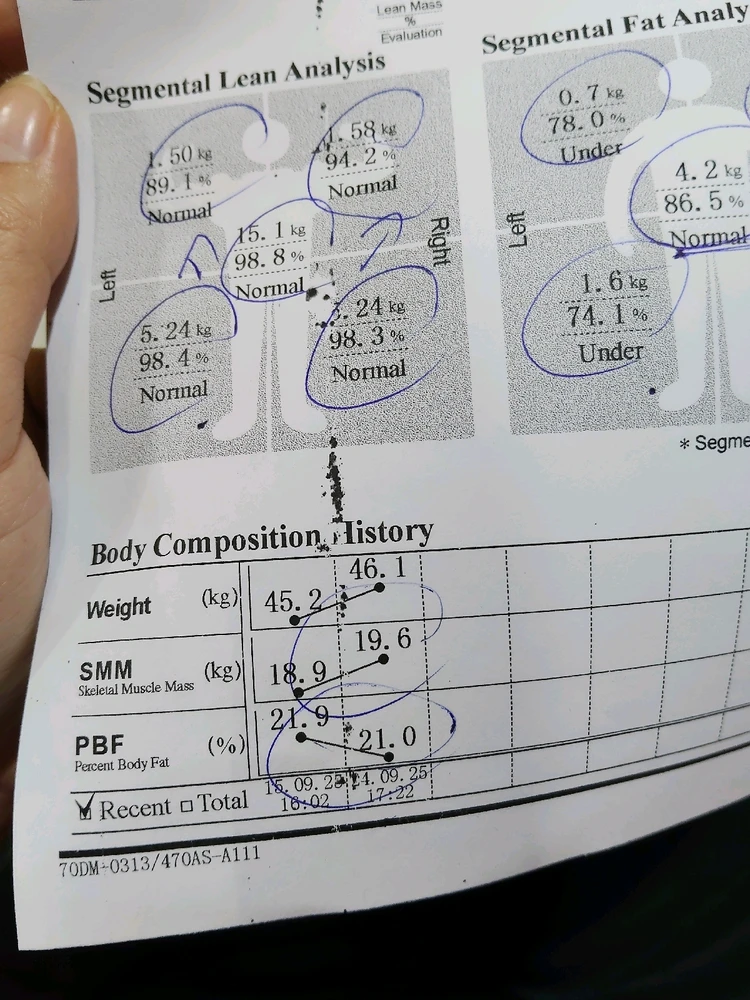 Lean Mass
%
Evaluation
Segmental Lean Analysis
1.50 kg
89.1 %
Normal
1.58 kg
94.2 %
Normal
15.1 kg
98.8 %
Normal
Left
Right
5.24 kg
98.4 %
Normal
5.24 kg
98.3 %
Normal
Segmental Fat Analy
0.7 kg
78.0 %
Under
4.2 kg
86.5 %
Normal
Left
1.6 kg
74.1 %
Under
* Segme
Body Composition History
Weight (kg) 45.2 46.1
SMM (kg) 18.9 19.6
Skeletal Muscle Mass
PBF (%) 21.9 21.0
Percent Body Fat
Recent Total 24.09.25
16:02 17:22
70DM-0313/470AS-A111